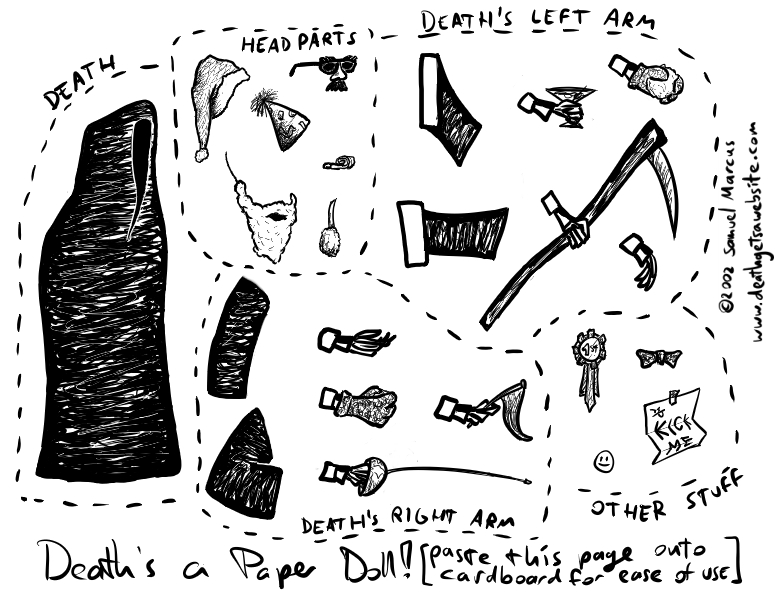 DEATH
HEAD PARTS
DEATH'S LEFT ARM
©2002 Samuel Marcus
www.deathgetsawebsite.com
1st
KICK
ME
DEATH'S RIGHT ARM
OTHER STUFF
Death's a Paper Doll! [paste this page onto
cardboard for ease of use]